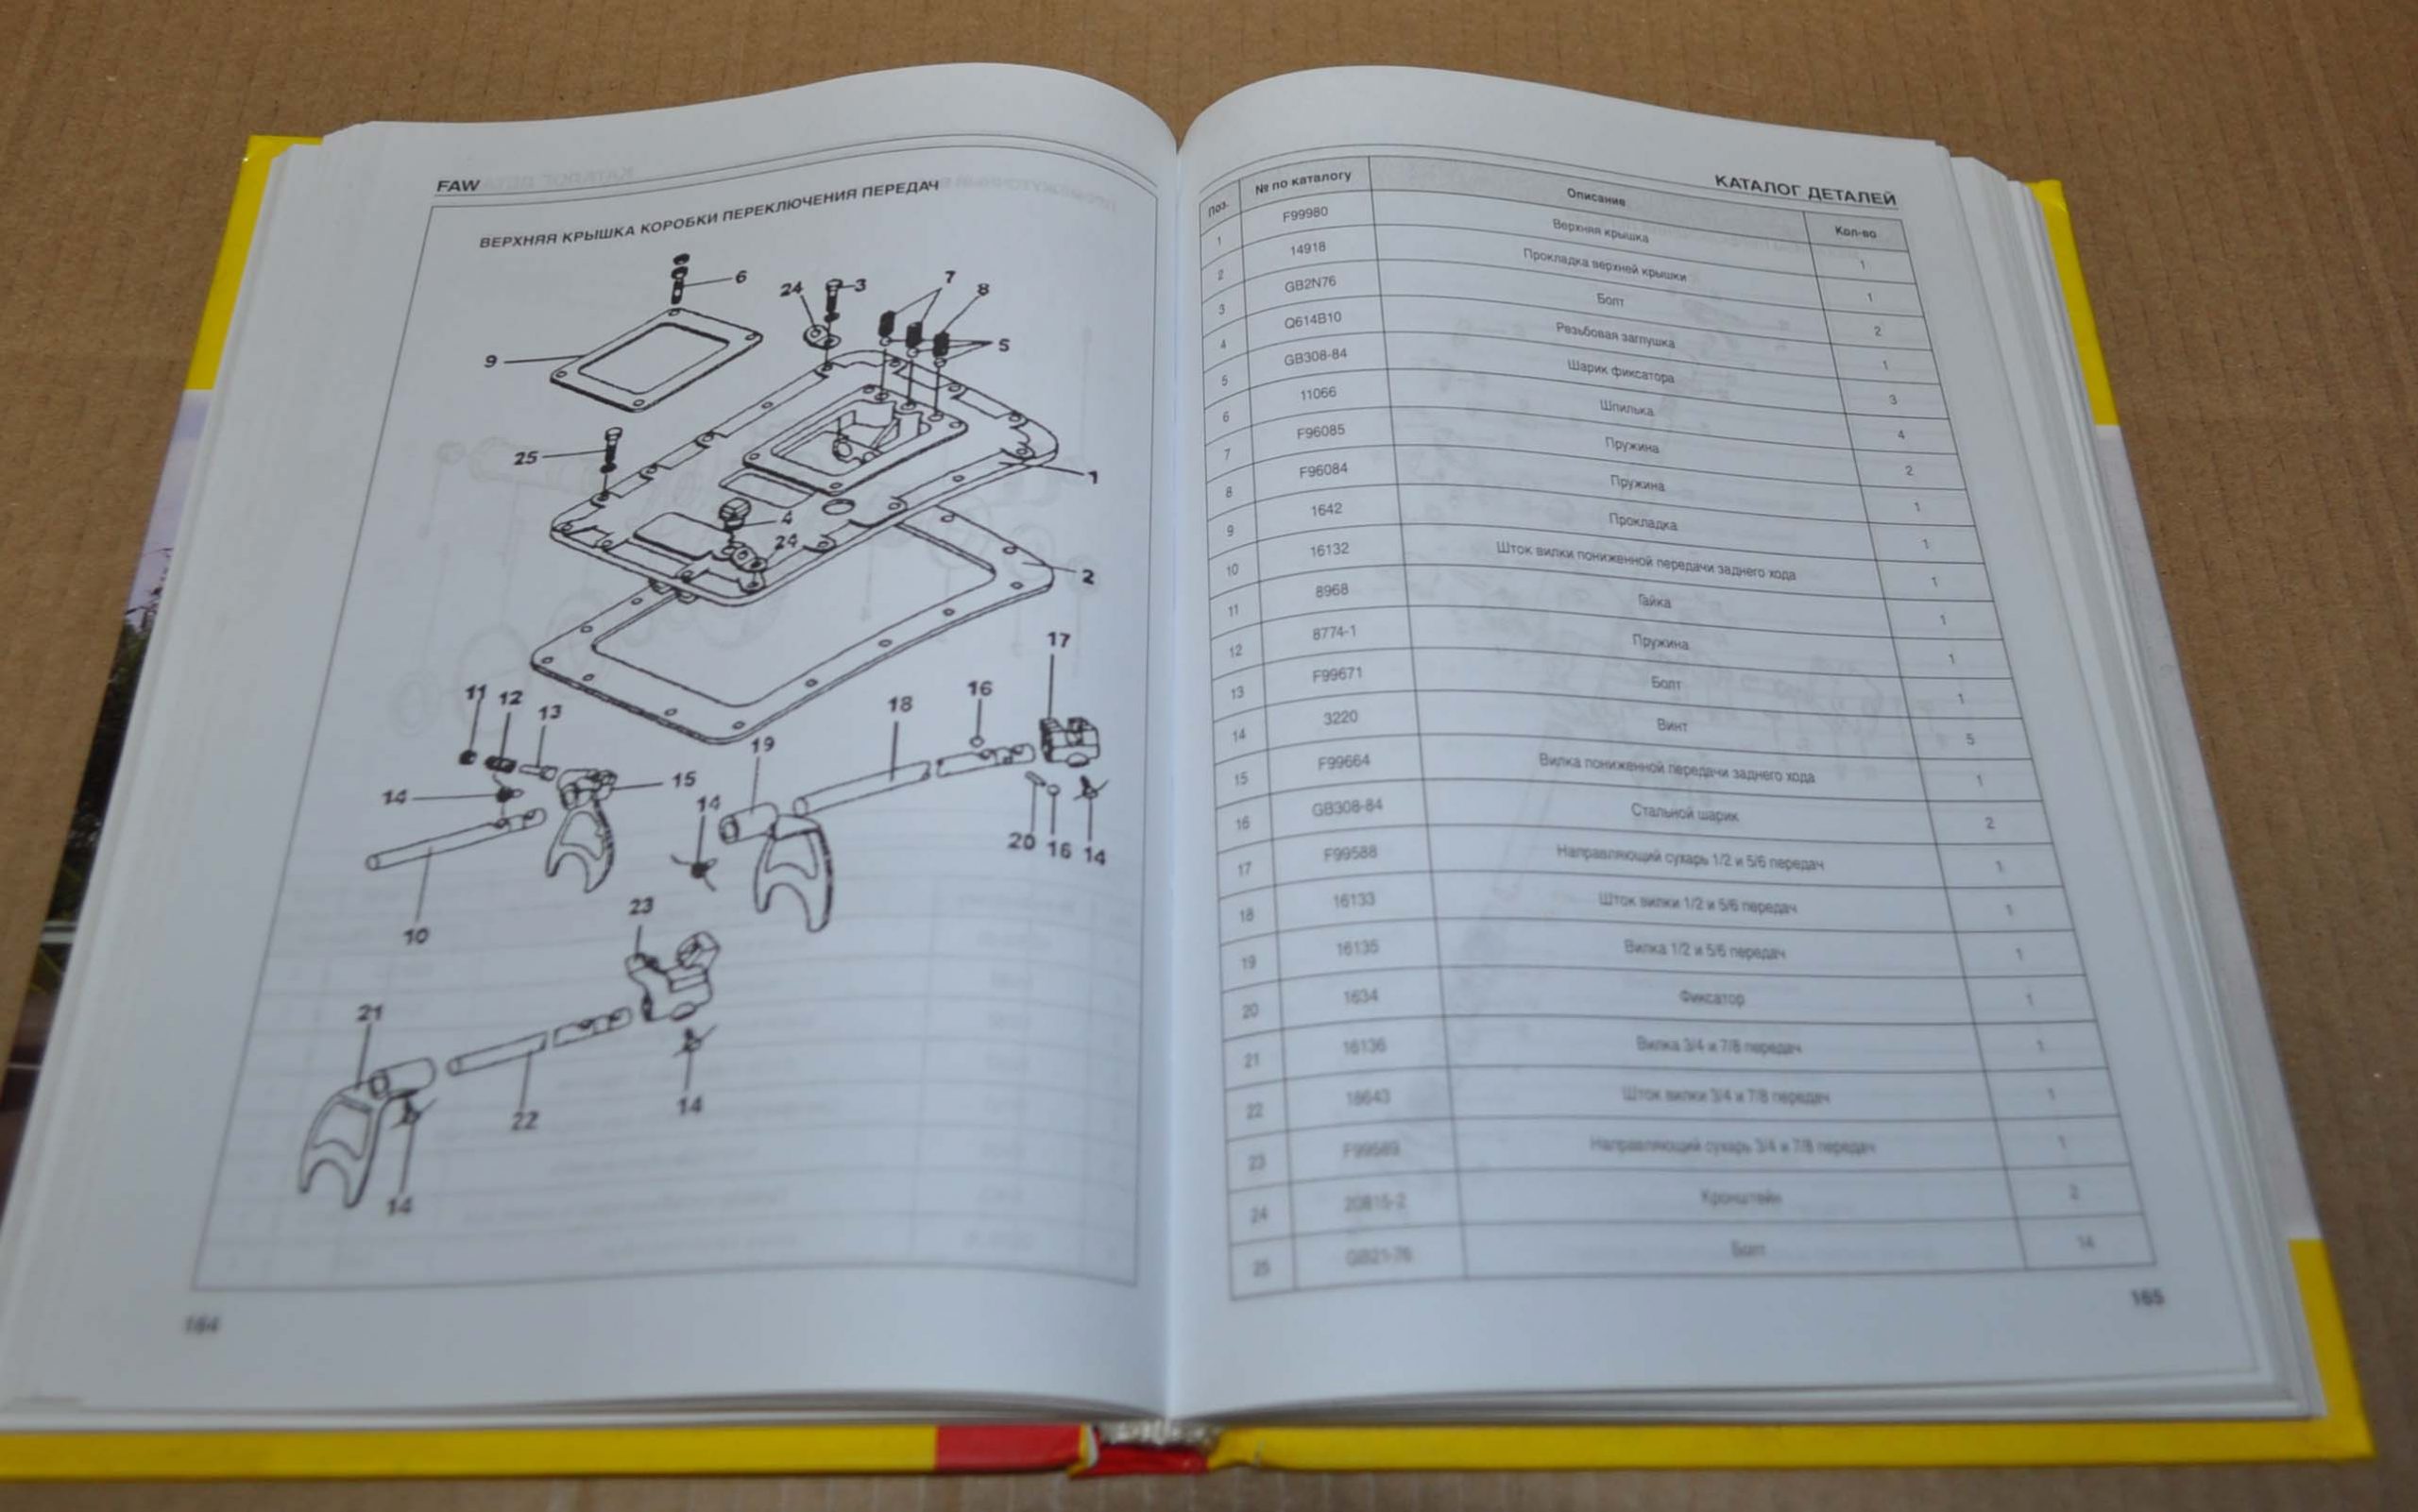 FAW
ВЕРХНЯЯ КРЫШКА КОРОБКИ ПЕРЕКЛЮЧЕНИЯ ПЕРЕДАЧ
6
24
3
7
8
9
5
25
1
4
24
2
17
11
12
13
18
16
19
14
15
14
20
16
14
10
23
21
22
14
14
164
КАТАЛОГ ДЕТАЛЕЙ
Поз. № по каталогу Описание Кол-во
1 F99980 Верхняя крышка 1
2 14918 Прокладка верхней крышки 1
3 GB2N76 Болт 2
4 Q614B10 Резьбовая заглушка 1
5 GB308-84 Шарик фиксатора 3
6 11066 Шпилька 4
7 F96085 Пружина 2
8 F96084 Пружина 1
9 1642 Прокладка 1
10 16132 Шток вилки пониженной передачи заднего хода 1
11 8968 Гайка 1
12 8774-1 Пружина 1
13 F99671 Болт 1
14 3220 Винт 5
15 F99664 Вилка пониженной передачи заднего хода 1
16 GB308-84 Стальной шарик 2
17 F99588 Направляющий сухарь 1/2 и 5/6 передач 1
18 16133 Шток вилки 1/2 и 5/6 передач 1
19 16135 Вилка 1/2 и 5/6 передач 1
20 1634 Фиксатор 1
21 16136 Вилка 3/4 и 7/8 передач 1
22 Шток вилки 3/4 и 7/8 передач 1
23 F99589 Направляющий сухарь 3/4 и 7/8 передач 1
24 20815-2 Кронштейн 2
25 GB21-76 Болт 14
165